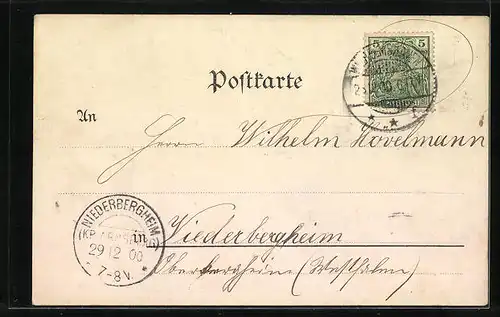 5 5
Postkarte
An
Herrn Wilhelm Hövelmann
in Niederbergheim
Oberbergheim (Westfalen)
NIEDERBERGHEIM
29 12 00
7-8V.